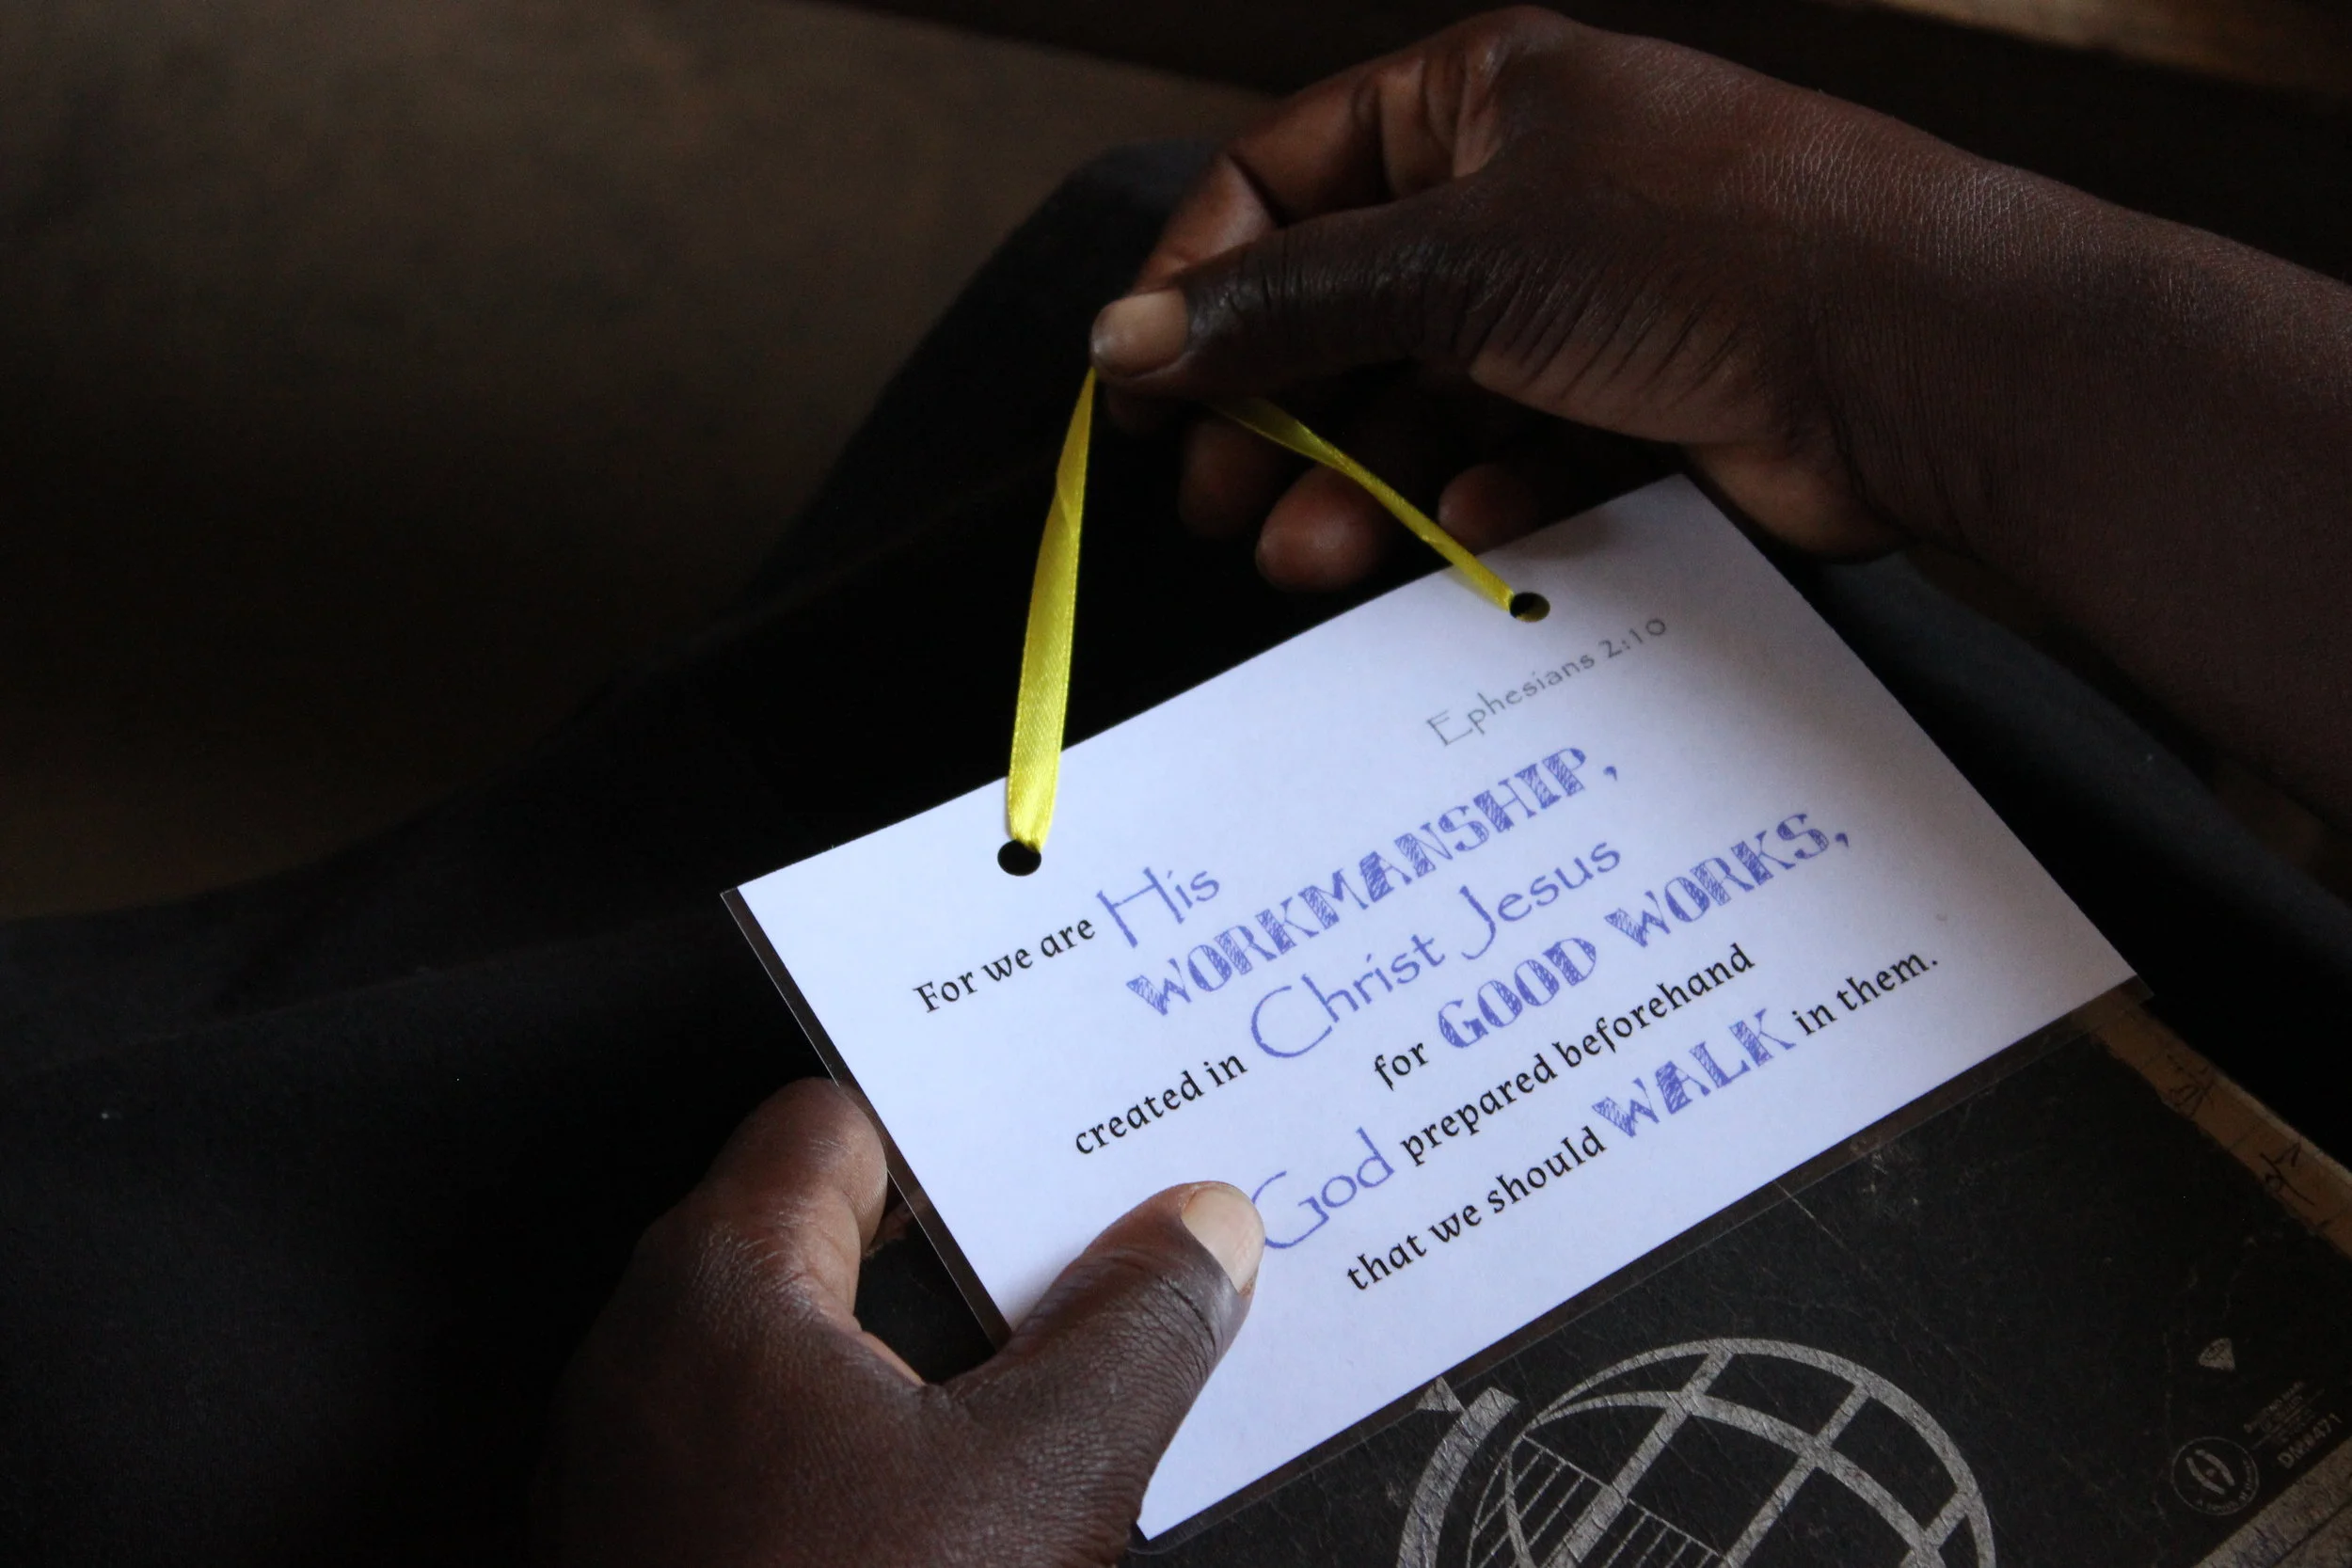 Ephesians 2:10
For we are His
WORKMANSHIP,
created in Christ Jesus
for GOOD WORKS,
God prepared beforehand
that we should WALK in them.
DM#471